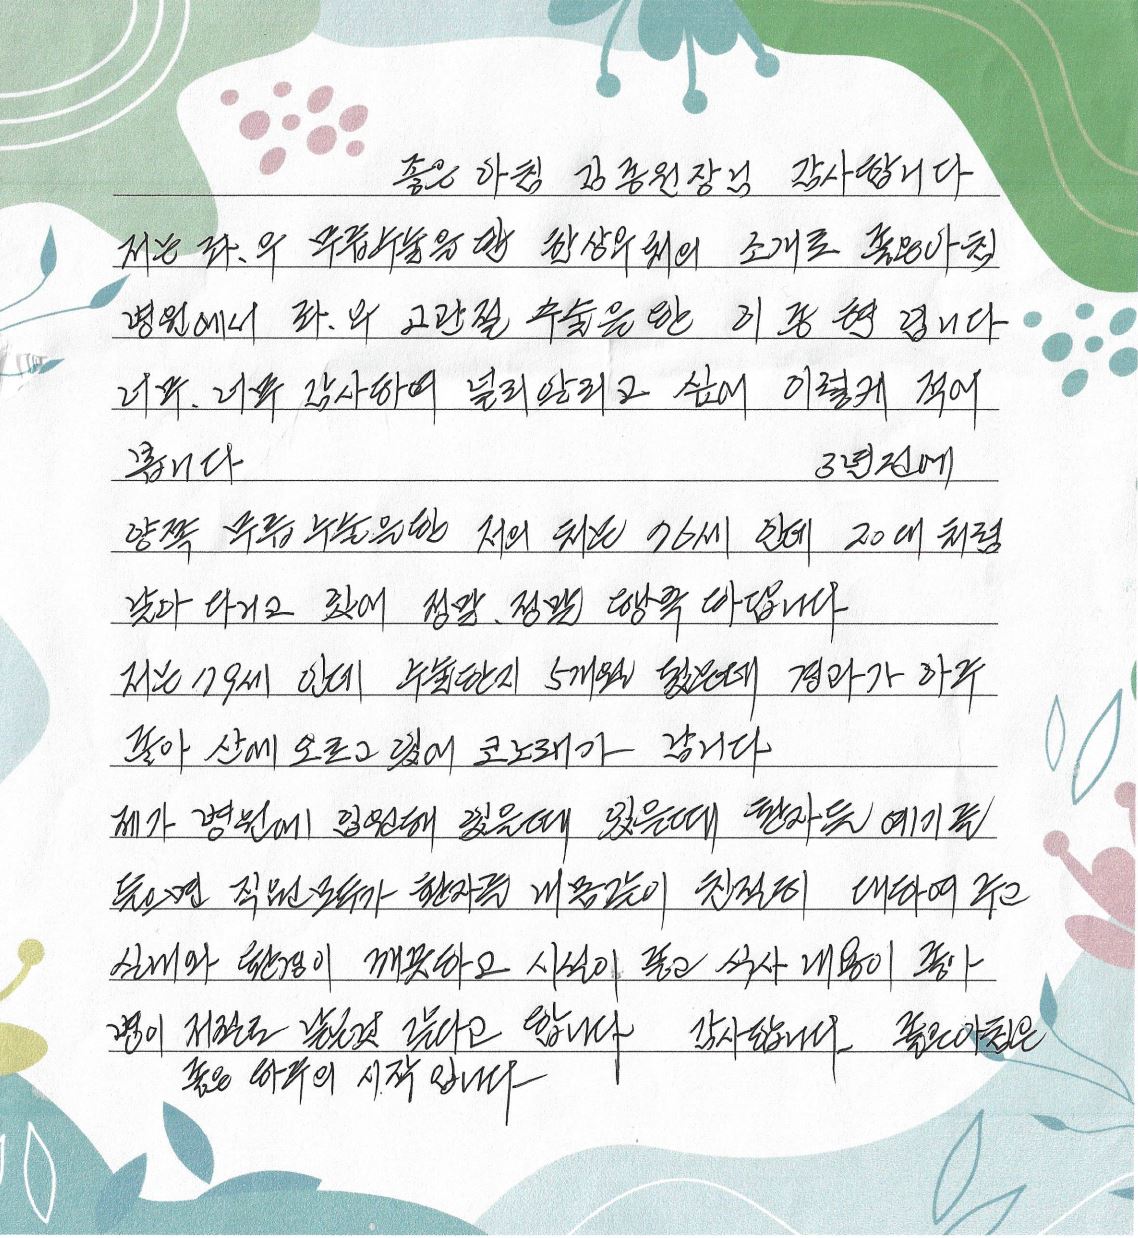 좋은 아침 김종원장님 감사합니다
저는 좌.우 무릎수술을 한 한상우처의 소개로 좋은아침
병원에서 좌.우 고관절 수술을 한 이종현 입니다
너무.너무 감사하여 널리알리고 싶어 이렇게 적어
봅니다 3년전에
양쪽 무릎수술을한 저의 처는 76세 인데 20대 처럼
날아 다니고 있어 정말.정말 행복 하답니다
저는 79세 인데 수술한지 5개월 됐는데 경과가 아주
좋아 산에 오르고 있어 코노래가 납니다
제가 병원에 입원해 있을때 있을때 환자들 얘기를
들으면 직원모두가 환자를 내몸같이 친절히 대하여 주고
실내와 환경이 깨끗하고 시설이 좋고 식사 내용이 좋아
병이 저절로 낫는것 같다고 합니다 감사합니다. 좋은아침은
좋은 하루의 시작 입니다